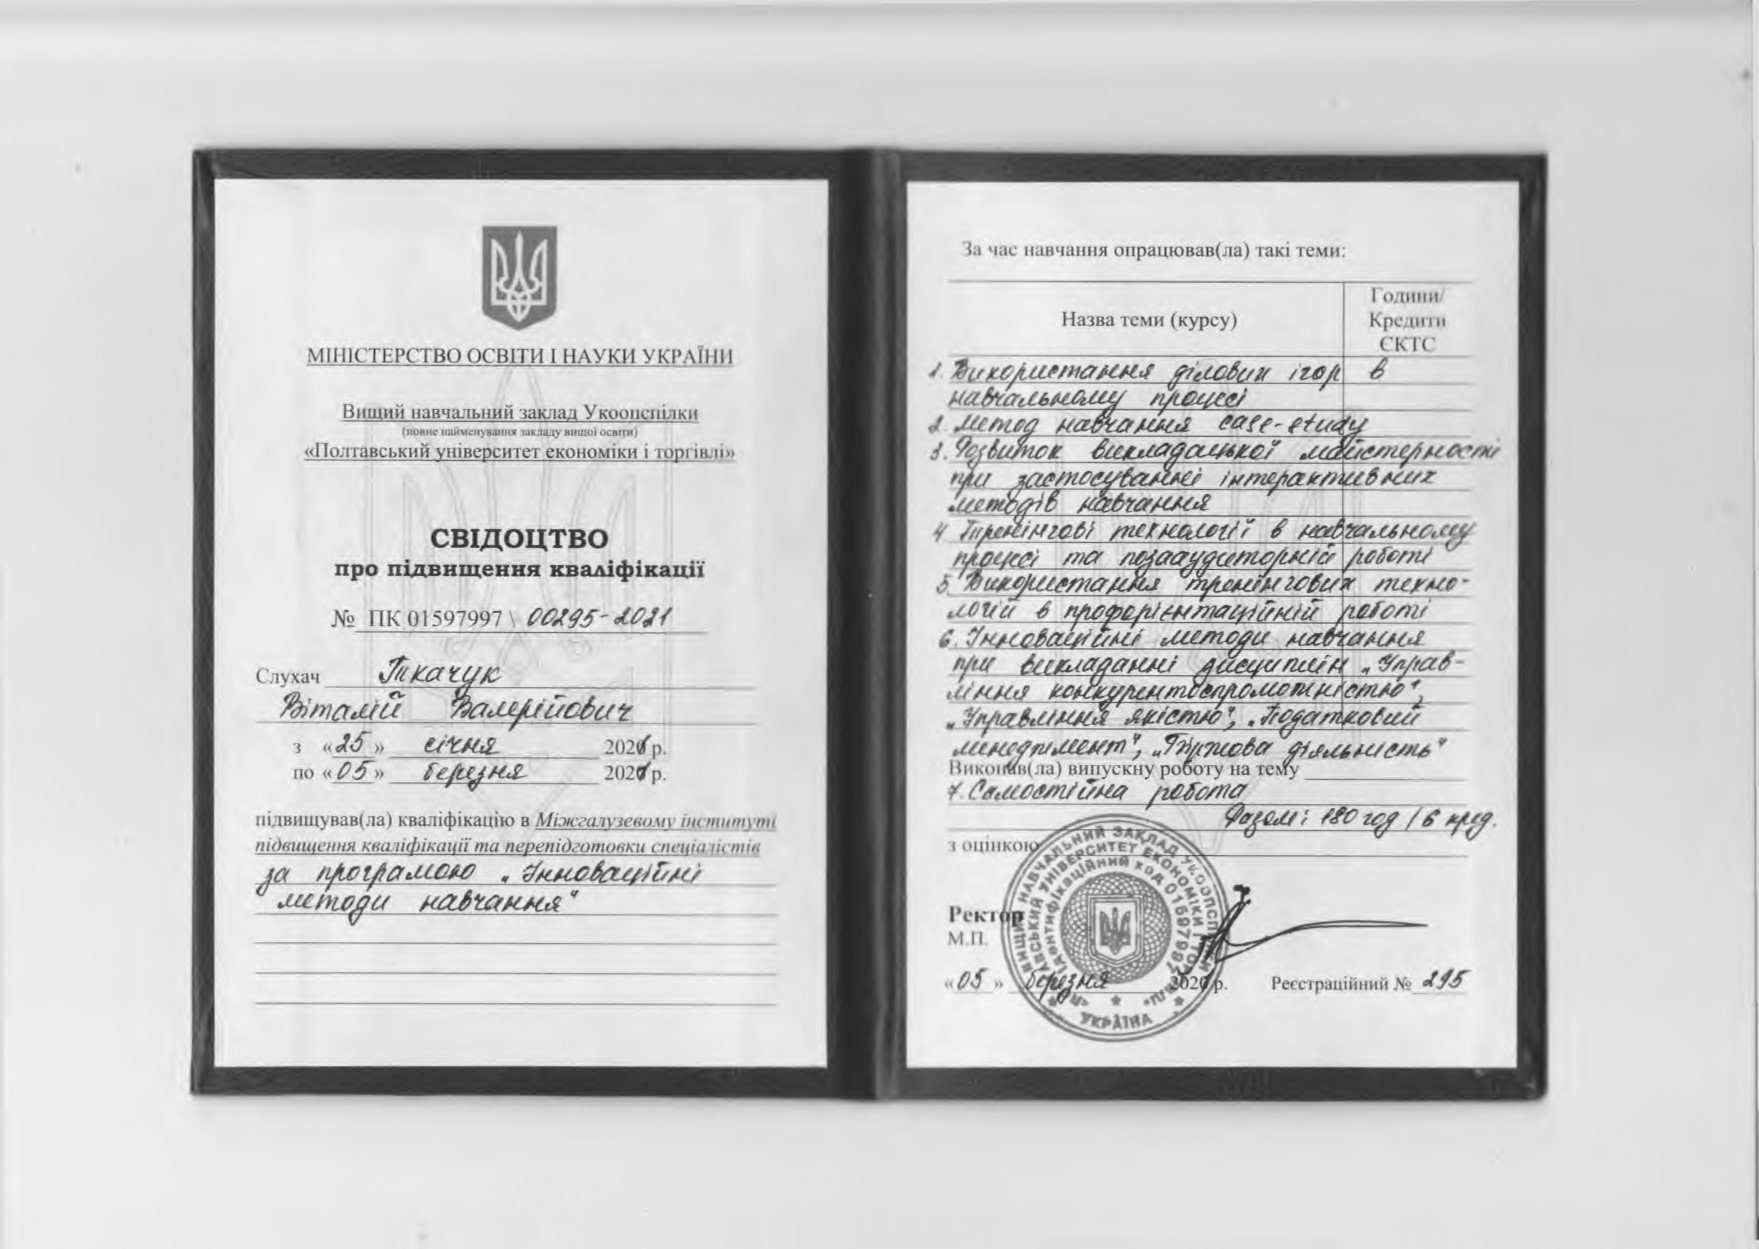 МІНІСТЕРСТВО ОСВІТИ І НАУКИ УКРАЇНИ
Вищий навчальний заклад Укоопспілки
(повне найменування закладу вищої освіти)
«Полтавський університет економіки і торгівлі»
СВІДОЦТВО
про підвищення кваліфікації
№ ПК 01597997 \ 00295-2021
Слухач Ткачук
Віталій Валерійович
з «25» січня 2021 р.
по «05» березня 2021 р.
підвищував(ла) кваліфікацію в Міжгалузевому інституті
підвищення кваліфікації та перепідготовки спеціалістів
за програмою „Інноваційні
методи навчання"
За час навчання опрацював(ла) такі теми:
Назва теми (курсу)
Години/
Кредити
ЄКТС
1. Використання ділових ігор в
навчальному процесі
2. Метод навчання case-study
3. Розвиток викладацької майстерності
при застосуванні інтерактивних
методів навчання
4 Тренінгові технології в навчальному
процесі та позааудиторній роботі
5 Використання тренінгових техно-
логій в профорієнтаційній роботі
6. Інноваційні методи навчання
при викладанні дисциплін „Управ-
ління конкурентоспроможністю",
„Управління якістю", „Податковий
менеджмент", „Біржова діяльність"
Виконав(ла) випускну роботу на тему
7. Самостійна робота
Разом: 180 год / 6 кред.
з оцінкою
Ректор
М.П.
«05» березня 2021 р. Реєстраційний № 295
ВИЩИЙ НАВЧАЛЬНИЙ ЗАКЛАД УКООПСПІЛКИ
УНІВЕРСИТЕТ ЕКОНОМІКИ І
Ідентифікаційний код 01597997
УКРАЇНА